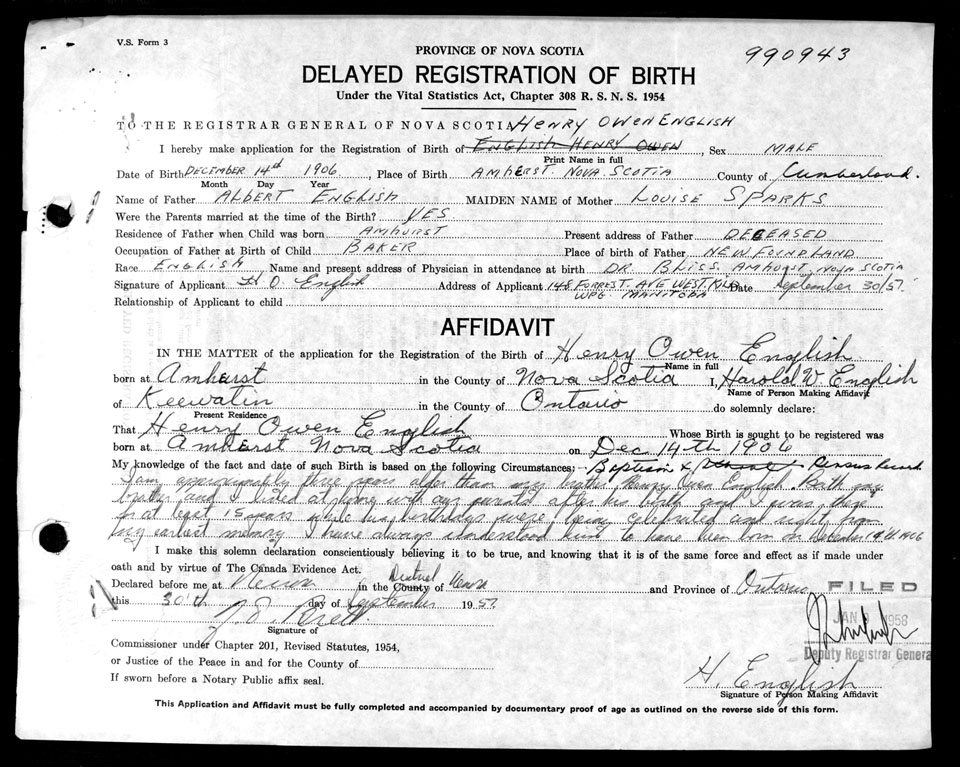 V.S. Form 3
990943
PROVINCE OF NOVA SCOTIA
DELAYED REGISTRATION OF BIRTH
Under the Vital Statistics Act, Chapter 308 R. S. N. S. 1954
TO THE REGISTRAR GENERAL OF NOVA SCOTIA HENRY OWEN ENGLISH
I hereby make application for the Registration of Birth of ENGLISH HENRY OWEN, Sex MALE
Print Name in full
Date of Birth DECEMBER 14th 1906, Place of Birth AMHERST. NOVA. SCOTIA County of Cumberland.
Month Day Year
Name of Father ALBERT ENGLISH MAIDEN NAME of Mother LOUISE SPARKS
Were the Parents married at the time of the Birth? YES
Residence of Father when Child was born AMHURST Present address of Father DECEASED
Occupation of Father at Birth of Child BAKER Place of birth of Father NEW FOUNDLAND
Race ENGLISH Name and present address of Physician in attendance at birth DR. BLISS. AMHURST, NOVA SCOTIA
Signature of Applicant H. O. English Address of Applicant 148 FORREST. AVE WEST. KILD Date September 30/57.
WPG. MANITOBA
Relationship of Applicant to child
AFFIDAVIT
IN THE MATTER of the application for the Registration of the Birth of Henry Owen English
Name in full
born at Amherst in the County of Nova Scotia I, Harold W English
Name of Person Making Affidavit
of Keewatin in the County of Ontario do solemnly declare:
Present Residence
That Henry Owen English Whose Birth is sought to be registered was
born at Amherst Nova Scotia on Dec 14th 1906
My knowledge of the fact and date of such Birth is based on the following Circumstances: Baptism & Census Record
I am approximately three years older than my brother Henry Owen English. Both my
brother and I lived at home with our parents after his birth and I was there
for at least 15 years while his birthdays were being celebrated and right from
my earliest memory I have always understood him to have been born on December 14th 1906
I make this solemn declaration conscientiously believing it to be true, and knowing that it is of the same force and effect as if made under
oath and by virtue of The Canada Evidence Act.
Declared before me at Kenora in the County of District Kenora and Province of Ontario
this 30th day of September 1957
Signature of
Commissioner under Chapter 201, Revised Statutes, 1954,
or Justice of the Peace in and for the County of
If sworn before a Notary Public affix seal.
FILED
JAN 1958
Deputy Registrar General
H. English
Signature of Person Making Affidavit
This Application and Affidavit must be fully completed and accompanied by documentary proof of age as outlined on the reverse side of this form.